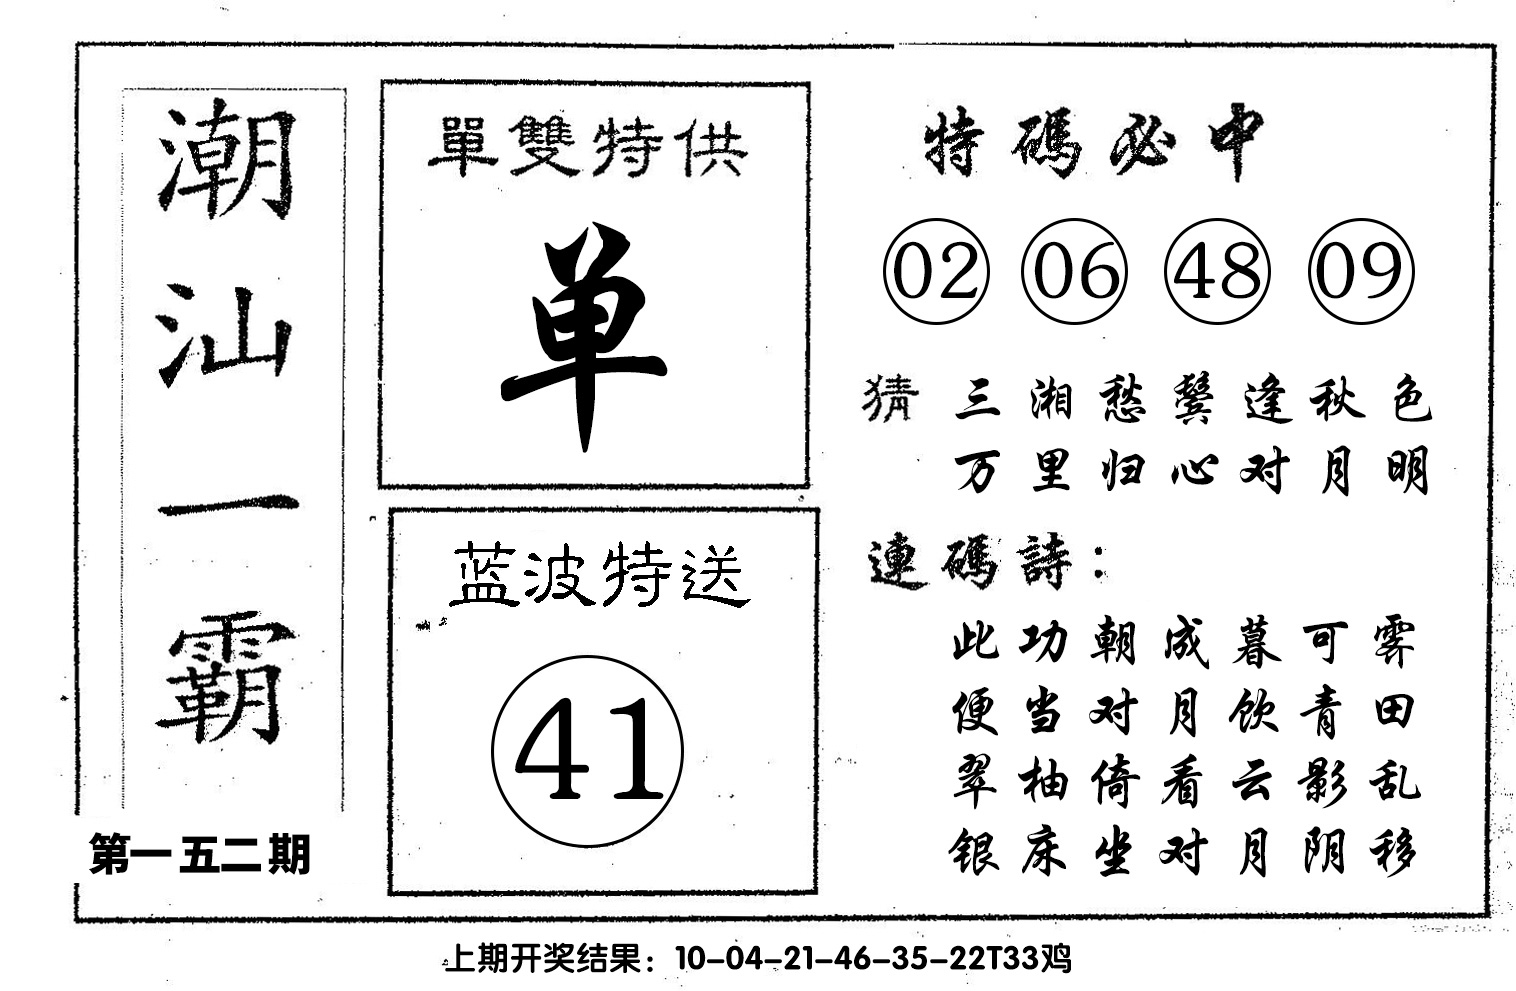 潮汕一霸
第一五二期
單雙特供
单
蓝波特送
41
特碼必中
02 06 48 09
猜 三湘愁鬓逢秋色
万里归心对月明
連碼詩：
此功朝成暮可霁
便当对月饮青田
翠柚倚看云影乱
银床坐对月阴移
上期开奖结果：10-04-21-46-35-22T33鸡